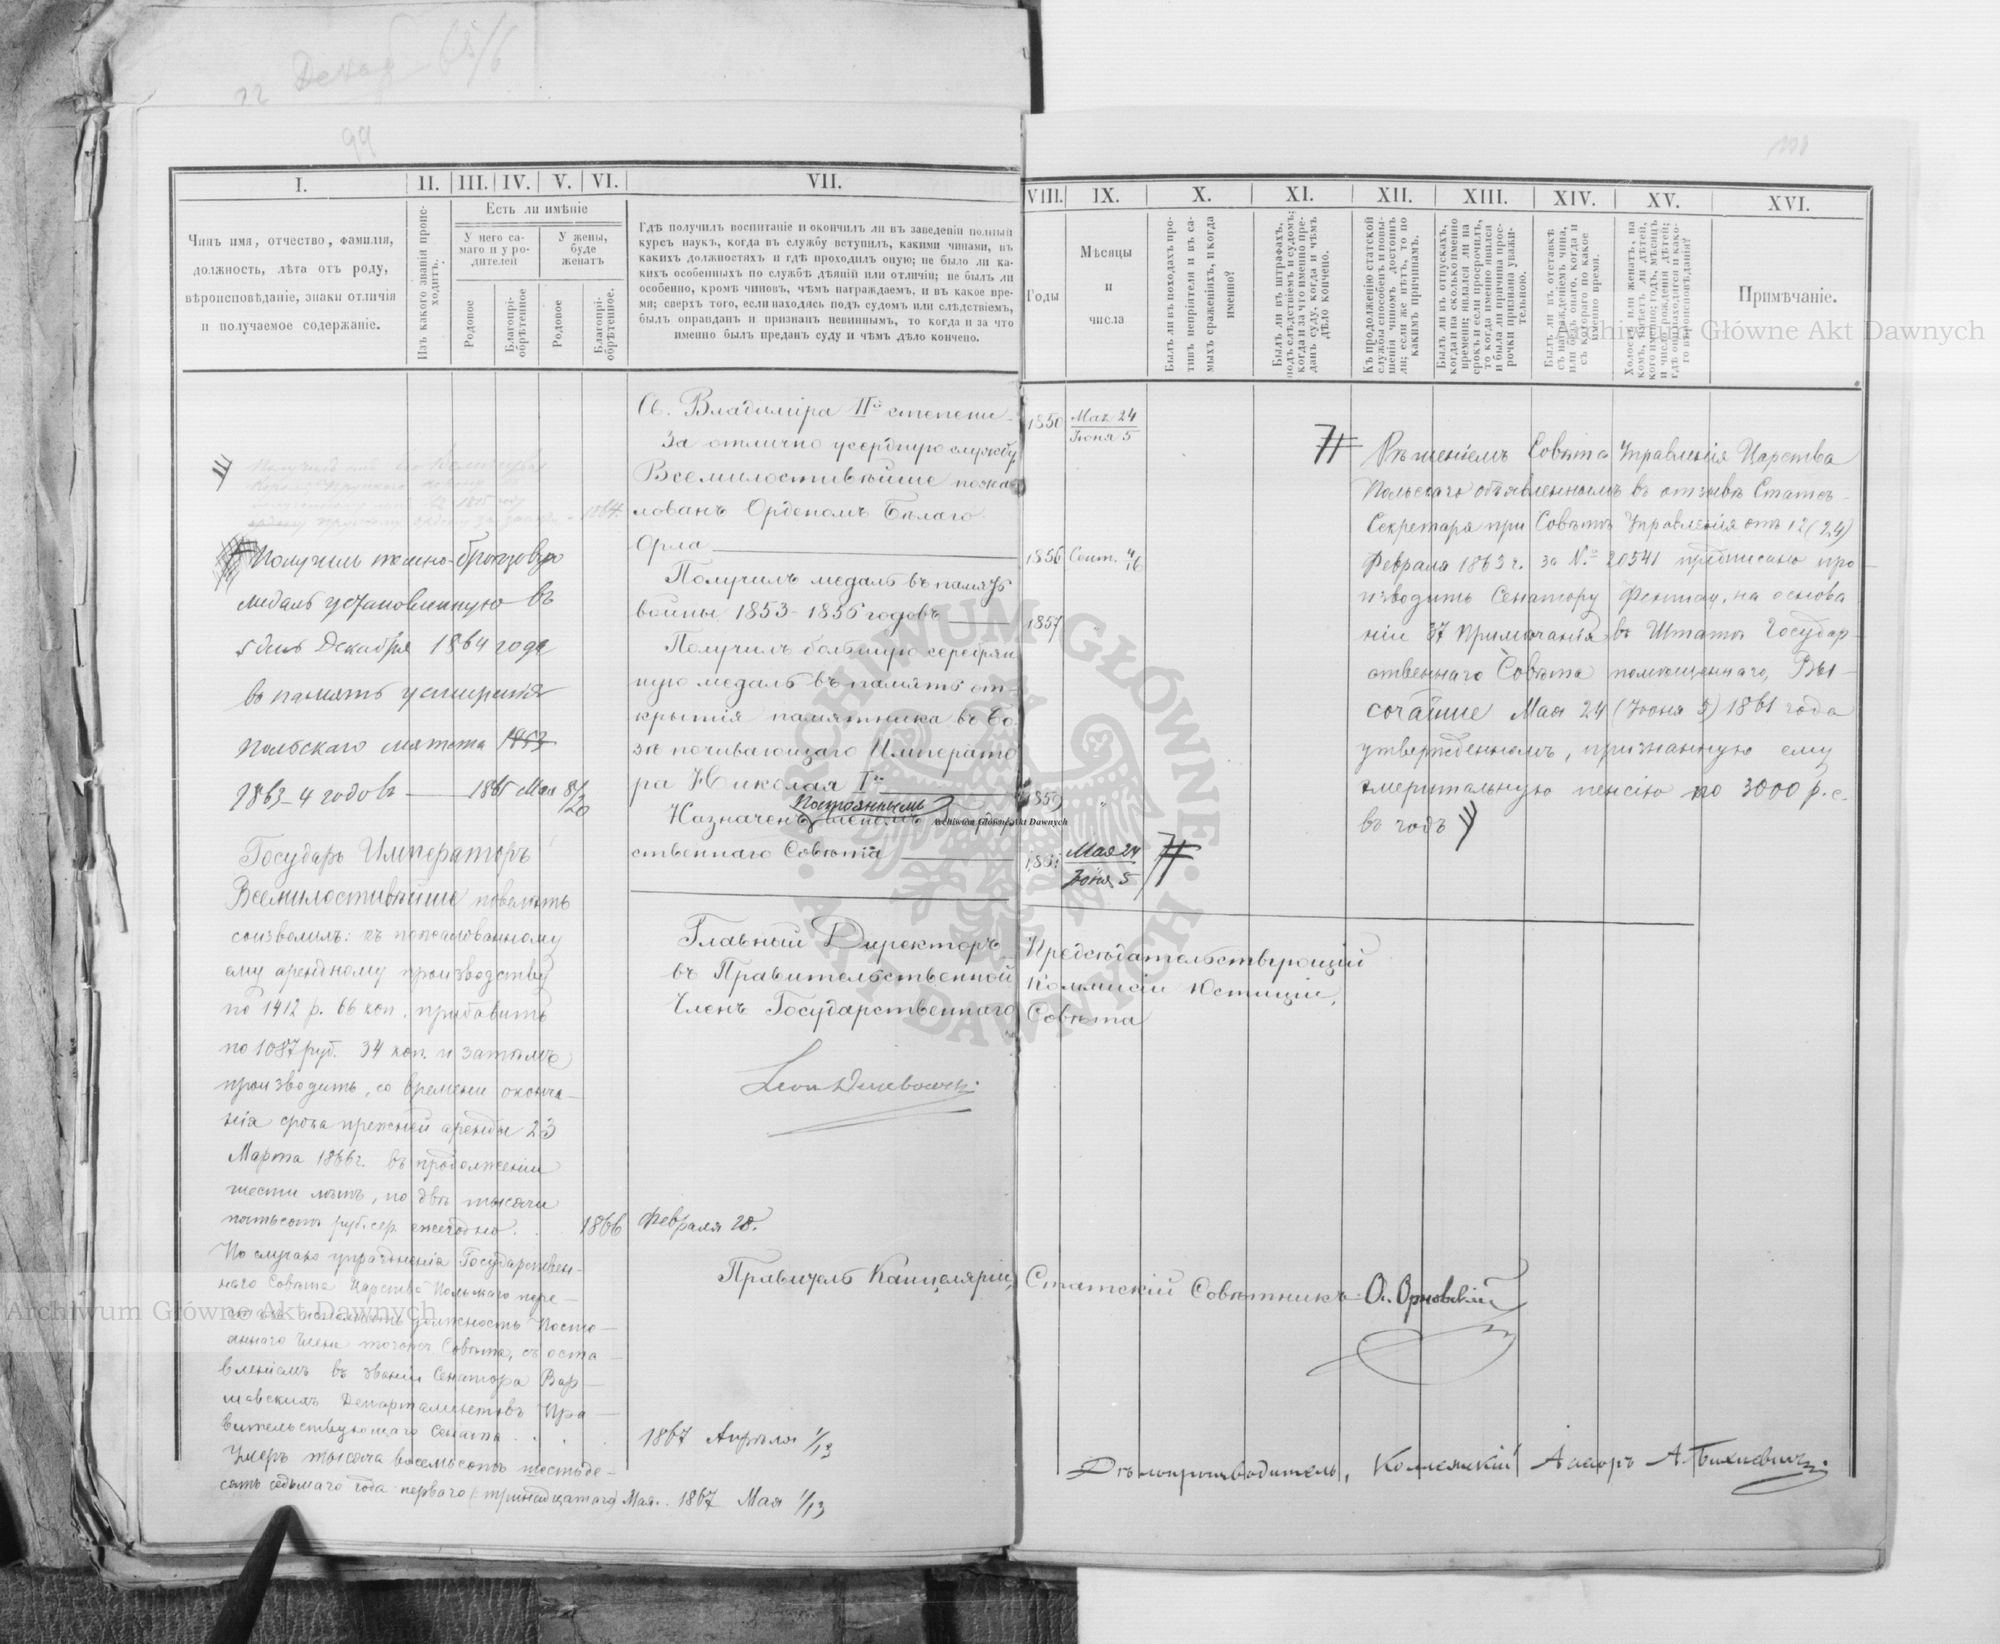 99
I. II. III. IV. V. VI. VII.
Чинъ имя, отчество, фамилія,
должность, лѣта отъ роду,
вѣроисповѣданіе, знаки отличія
и получаемое содержаніе.
Изъ какого званія проис-
ходитъ.
Есть ли имѣніе
У него са-
маго и у ро-
дителей
У жены,
буде
женатъ
Родовое
Благопрі-
обрѣтенное
Родовое
Благопрі-
обрѣтенное.
Гдѣ получилъ воспитаніе и окончилъ ли въ заведеніи полный
курсъ наукъ, когда въ службу вступилъ, какими чинами, въ
какихъ должностяхъ и гдѣ проходилъ оную; не было ли ка-
кихъ особенныхъ по службѣ дѣяній или отличій; не былъ ли
особенно, кромѣ чиновъ, чѣмъ награждаемъ, и въ какое вре-
мя; сверхъ того, если находясь подъ судомъ или слѣдствіемъ,
былъ оправданъ и признанъ невиннымъ, то когда и за что
именно былъ преданъ суду и чѣмъ дѣло кончено.
1864.
Получилъ темно-бронзовую
медаль установленную въ
Декабря 1864 года
въ память усмиренія
Польскаго мятежа
1863-4 годовъ 1865 Мая 8/20
Государь Императоръ
Всемилостивѣйше повелѣть
соизволилъ: къ пожалованному
ему арендному производству
по 1412 р. 66 коп. прибавить
по 1087 руб. 34 коп. и затѣмъ
производить, со времени оконча-
нія срока прежней аренды 23
Марта 1866 г. въ продолженіи
шести лѣтъ, по двѣ тысячи
пятьсотъ руб. сер. ежегодно . . 1866 Февраля 28.
По случаю упраздненія Государствен-
наго Совѣта Царства Польскаго пере-
должность Посто-
яннаго Члена Совѣта, съ оста-
вленіемъ въ званіи Сенатора Вар-
шавскихъ Департаментовъ Пра-
вительствующаго Сената . . . 1867 Апрѣля 1/13
Умеръ тысяча восемьсотъ шестьде-
сятъ седьмаго года перваго (тринадцатаго) Мая. 1867 Мая 1/13
Св. Владиміра IIй степени
За отлично усердную службу
Всемилостивѣйше пожа-
лованъ Орденомъ Бѣлаго
Орла
Получилъ медаль въ память
войны 1853-1856 годовъ
Получилъ большую серебрян
ную медаль въ память от-
крытія памятника въ Бо-
зѣ почивающаго Императо
ра Николая Iго
Постояннымъ
Назначенъ членомъ Государ
ственнаго Совѣта
VIII. IX. X. XI. XII. XIII. XIV. XV. XVI.
Годы
Мѣсяцы
и
числа
Былъ ли въ походахъ про-
тивъ непріятеля и въ са-
мыхъ сраженіяхъ, и когда
именно?
Былъ ли въ штрафахъ,
подъ слѣдствіемъ и судомъ;
когда и за что именно пре-
данъ суду, когда и чѣмъ
дѣло кончено.
Къ продолженію статской
службы способенъ и повы-
шенія чиномъ достоинъ
ли; если же нѣтъ, то по
какимъ причинамъ.
Былъ ли въ отпускахъ,
когда и на сколько именно
времени; являлся ли на
срокъ и если просрочилъ,
то когда именно явился
и была ли причина прос-
рочки признана уважи-
тельною.
Былъ ли въ отставкѣ
съ награжденіемъ чина,
или безъ онаго, когда и
съ котораго по какое
именно время.
Холостъ или женатъ, на
комъ, имѣетъ ли дѣтей,
кого именно; годъ, мѣсяцъ
и число рожденія дѣтей;
гдѣ они находятся и како-
го вѣроисповѣданія?
Примѣчаніе.
1850 Мая 24
Іюня 5
1856 Сент. 4/16
1857 "
1859 "
1861 Мая 24
Іюня 5
Рѣшеніемъ Совѣта Управленія Царства
Польскаго объявленнымъ въ отзывѣ Статсъ-
Секретаря при Совѣтѣ Управленія отъ 12 (24)
Февраля 1863 г. за № 20541 предписано про-
изводить Сенатору на основа
ніи 37 Примѣчанія въ Штатѣ Государ-
ственнаго Совѣта помѣщеннаго, Вы-
сочайше Мая 24 (Іюня 5) 1861 года
утвержденномъ, признанную ему
эмеритальную пенсію по 3000 р. с.
въ годъ
Главный Директоръ Предсѣдательствующій
въ Правительственной Коммисіи Юстиціи,
Членъ Государственнаго Совѣта
Правитель Канцеляріи, Статскій Совѣтникъ
Дѣлопроизводитель, Коллежскій Асесоръ
Archiwum Główne Akt Dawnych
Archiwum Główne Akt Dawnych
Archiwum Główne Akt Dawnych
ARCHIWUM GŁÓWNE AKT DAWNYCH